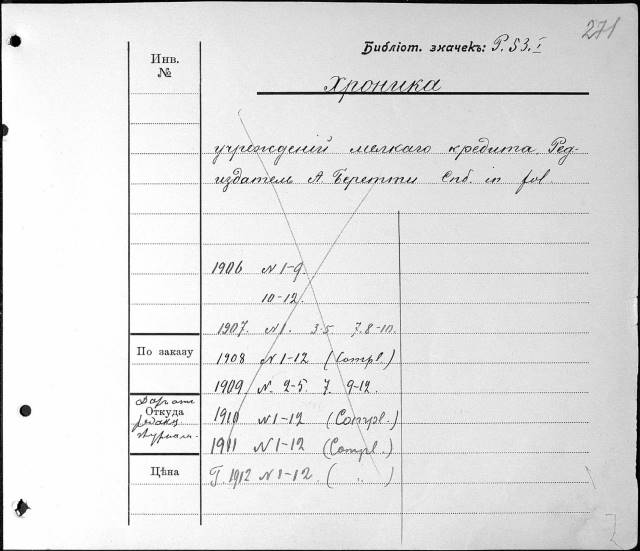 271
Библіот. значекъ: Р. 53. I
Инв. №
Хроника
учрежденій мелкаго кредита. Ред-
издатель А. Беретти Спб. in fol.
1906 N 1-9
10-12.
1907. N 1. 3-5 7. 8-10.
По заказу
1908 N 1-12 (Compl.)
1909 N. 2-5. 7. 9-12.
Откуда
редакц.
журнала.
1910 N 1-12 (Compl.)
1911 N 1-12 (Compl.)
Цѣна
Г. 1912 N 1-12. ( „ )